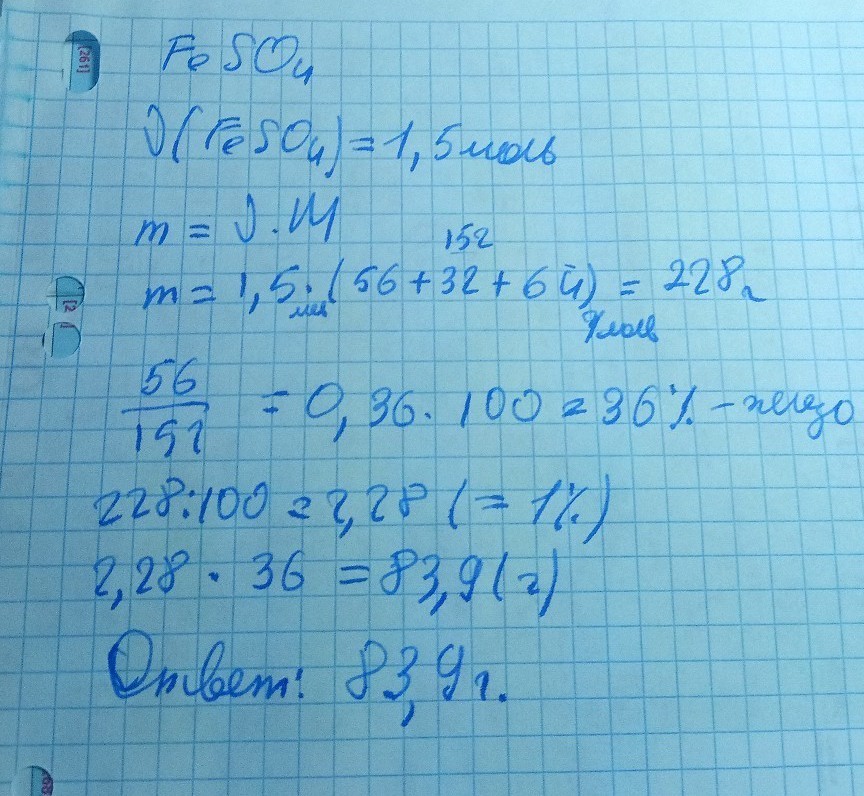 FeSO₄
ν(FeSO₄) = 1,5 моль
m = ν · M
152
m = 1,5 · (56 + 32 + 64) = 228 г
моль г/моль
56/152 = 0,36 · 100 = 36% - железо
228 : 100 = 2,28 (= 1%)
2,28 · 36 = 83,9 (г)
Ответ: 83,9 г.